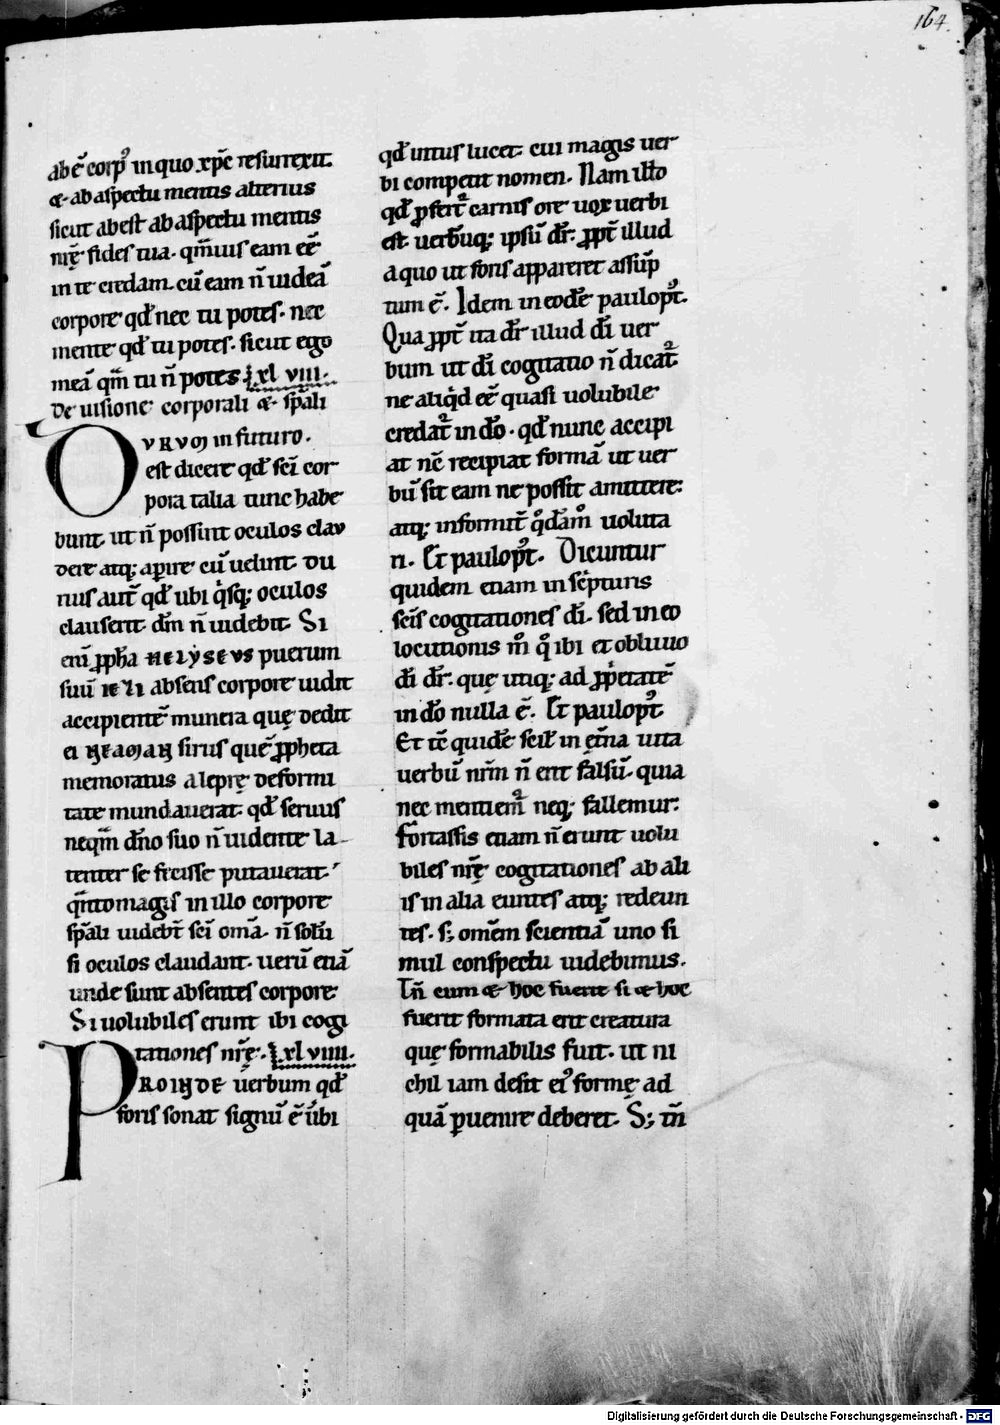 164.
ab ē corpꝰ in quo xp̄c resurrexit.
& ab aspectu mentis alterius
sicut abest ab aspectu mentis
nr̄ę fides tua. qm̄uis eam eē
in te credam. cū eam n̄ uideā
corpore qd̄ nec tu potes. nec
mente qd̄ tu potes. sicut ego
meā qm̄ tu n̄ potes. xl viii.
De uisione corporali & sp̄ali
DVRVM in futuro.
est dicere qd̄ sc̄i cor
pora talia tunc habe
bunt. ut n̄ possint oculos clau
dere atq; aꝑire cū uelint. Du
rius aut̄ qd̄ ubi qͥsq; oculos
clauserit. dm̄ n̄ uidebit. Si
eni ꝓph̄a HELYSEVS puerum
suū IEZI absens corpore uidit
accipientē munera quę dedit
ei NEAMAN sirus quē ꝓpheta
memoratus a leprę deformi
tate mundauerat. qd̄ seruus
neqm̄ dn̄o suo n̄ uidente la
tenter se fecisse putauerat.
qn̄tomagis in illo corpore
sp̄ali uidebt̄ sc̄i om̄a. n̄ solū
si oculos claudant. uerū etiā
unde sunt absentes corpore
Si uolubiles erunt ibi cogi
tationes nr̄ę. xl viiii.
PROINDE uerbum qd̄
foris sonat signū ē u̇bi
qd̄ intus lucet. cui magis uer
bi competit nomen. Nam illd̄
qd̄ ꝓfert̄ carnis ore uox uerbi
est. uerbūq; ipsū dr̄. ꝓpt̄ illud
a quo ut foris appareret assūp
tum ē. Idem in eodē paulopꝰt.
Qua ꝓpt̄ ita dr̄ illud dī uer
bum ut dī cogitatio n̄ dicat̄
ne aliqͥd eē quasi uolubile
credat̄ in dō. qd̄ nunc accipi
at nc̄ recipiat formā ut uer
bū sit eam ne possit amittere.
atq; informit̄ qͦdām uoluta
ri. Et paulopꝰt. Dicuntur
quidem etiam in sc̄pturis
sc̄is cogitationes dī. sed in eo
locutionis mͦ qͦ ibi et obliuio
dī dr̄. quę utiq; ad ꝓprietatē
in dō nulla ē. Et paulopꝰt
Et tc̄ quidē scił in ęt̄na uita
uerbū nr̄m n̄ erit falsū. quia
nec mentiem̄ neq; fallemur.
fortassis etiam n̄ erunt uolu
biles nr̄ę cogitationes ab ali
is in alia euntes atq; redeun
tes. s; omēm scientiā uno si
mul conspectu uidebimus.
Tn̄ cum & hoc fuerit si & hoc
fuerit formata erit creatura
quę formabilis fuit. ut ni
chil iam desit eiꝰ formę ad
quā ꝑuenire deberet. S; tn̄
Digitalisierung gefördert durch die Deutsche Forschungsgemeinschaft - DFG